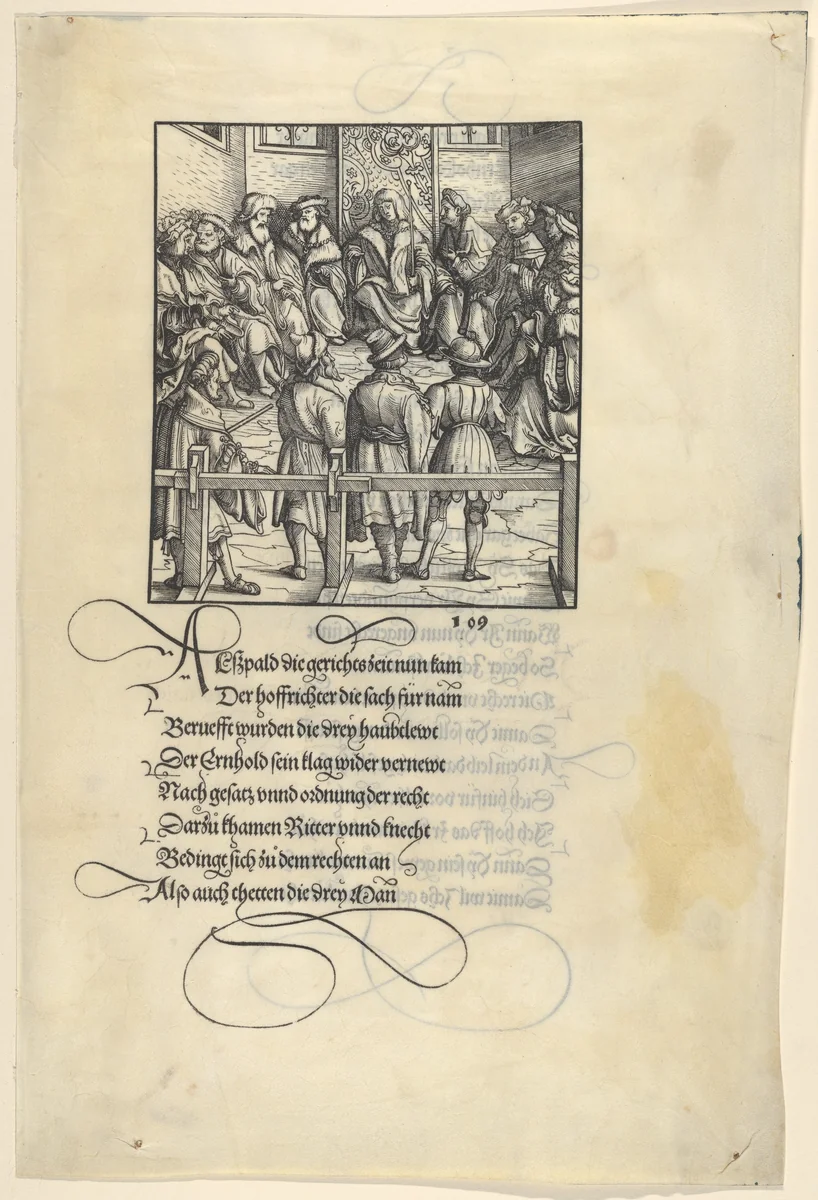 109
ALſzpald die gerichts zeit nun kam
Der hoffrichter die ſach für nam̄
Beruefft wurden die dreÿ haubtlewt
Der Ernhold ſein klag wider vernewt
Nach geſatz vnnd ordnung der recht
Darzů khamen Ritter vnnd knecht
Bedingt ſich zů dem rechten an
Alſo auch thetten die dreÿ Man̄